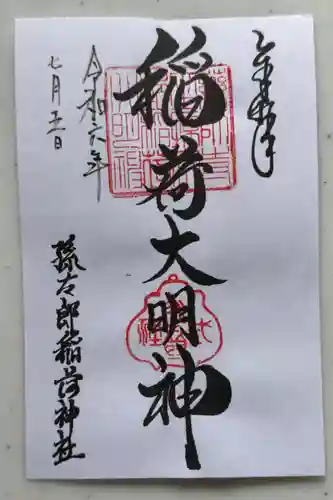 奉拝
稲荷大明神
令和六年
七月五日
孫太郎稲荷神社